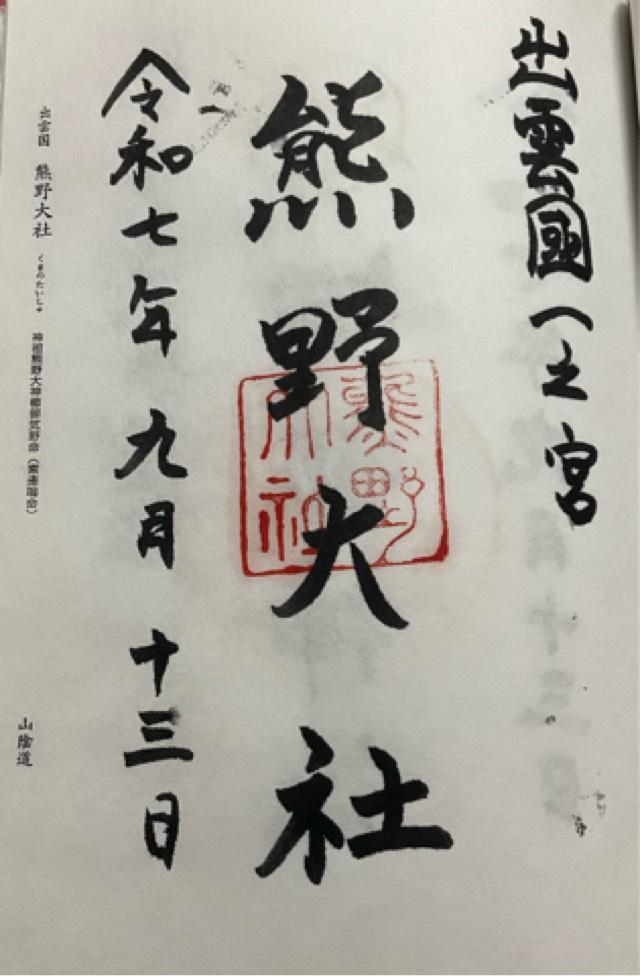 出雲國一之宮
熊野大社
熊野大社
令和七年 九月 十三日
出雲国 熊野大社 くまのたいしゃ 神祖熊野大神櫛御気野命(素戔嗚命)
山陰道